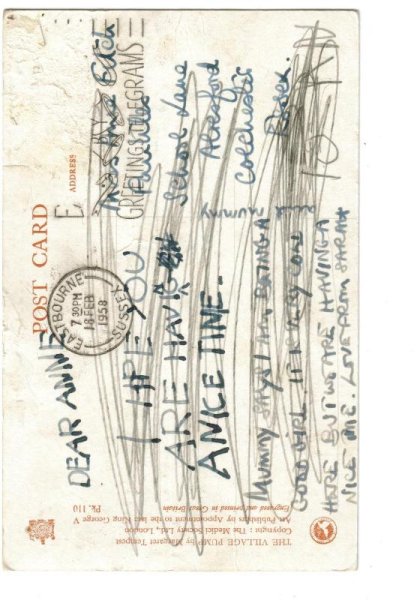 POST CARD
ADDRESS
GREETINGS TELEGRAMS
EASTBOURNE
7 30PM
18 FEB
1958
SUSSEX
DEAR ANNE
I HPE YOU
ARE HAVING
A NICE TIME.
Mummy SAYS I AM BEING A
GOOD GIRL. IT IS VERY COLD
HERE BUT WE ARE HAVING A
NICE TIME. LOVE FROM SARAH
Mummy
Miss Anne
School Lane
Alresford
Colchester
Essex.
THE VILLAGE PUMP by Margaret Tempest
Copyright : The Medici Society Ltd., London
Art Publishers by Appointment to the late King George V
Pk. 110 Engraved and printed in Great Britain